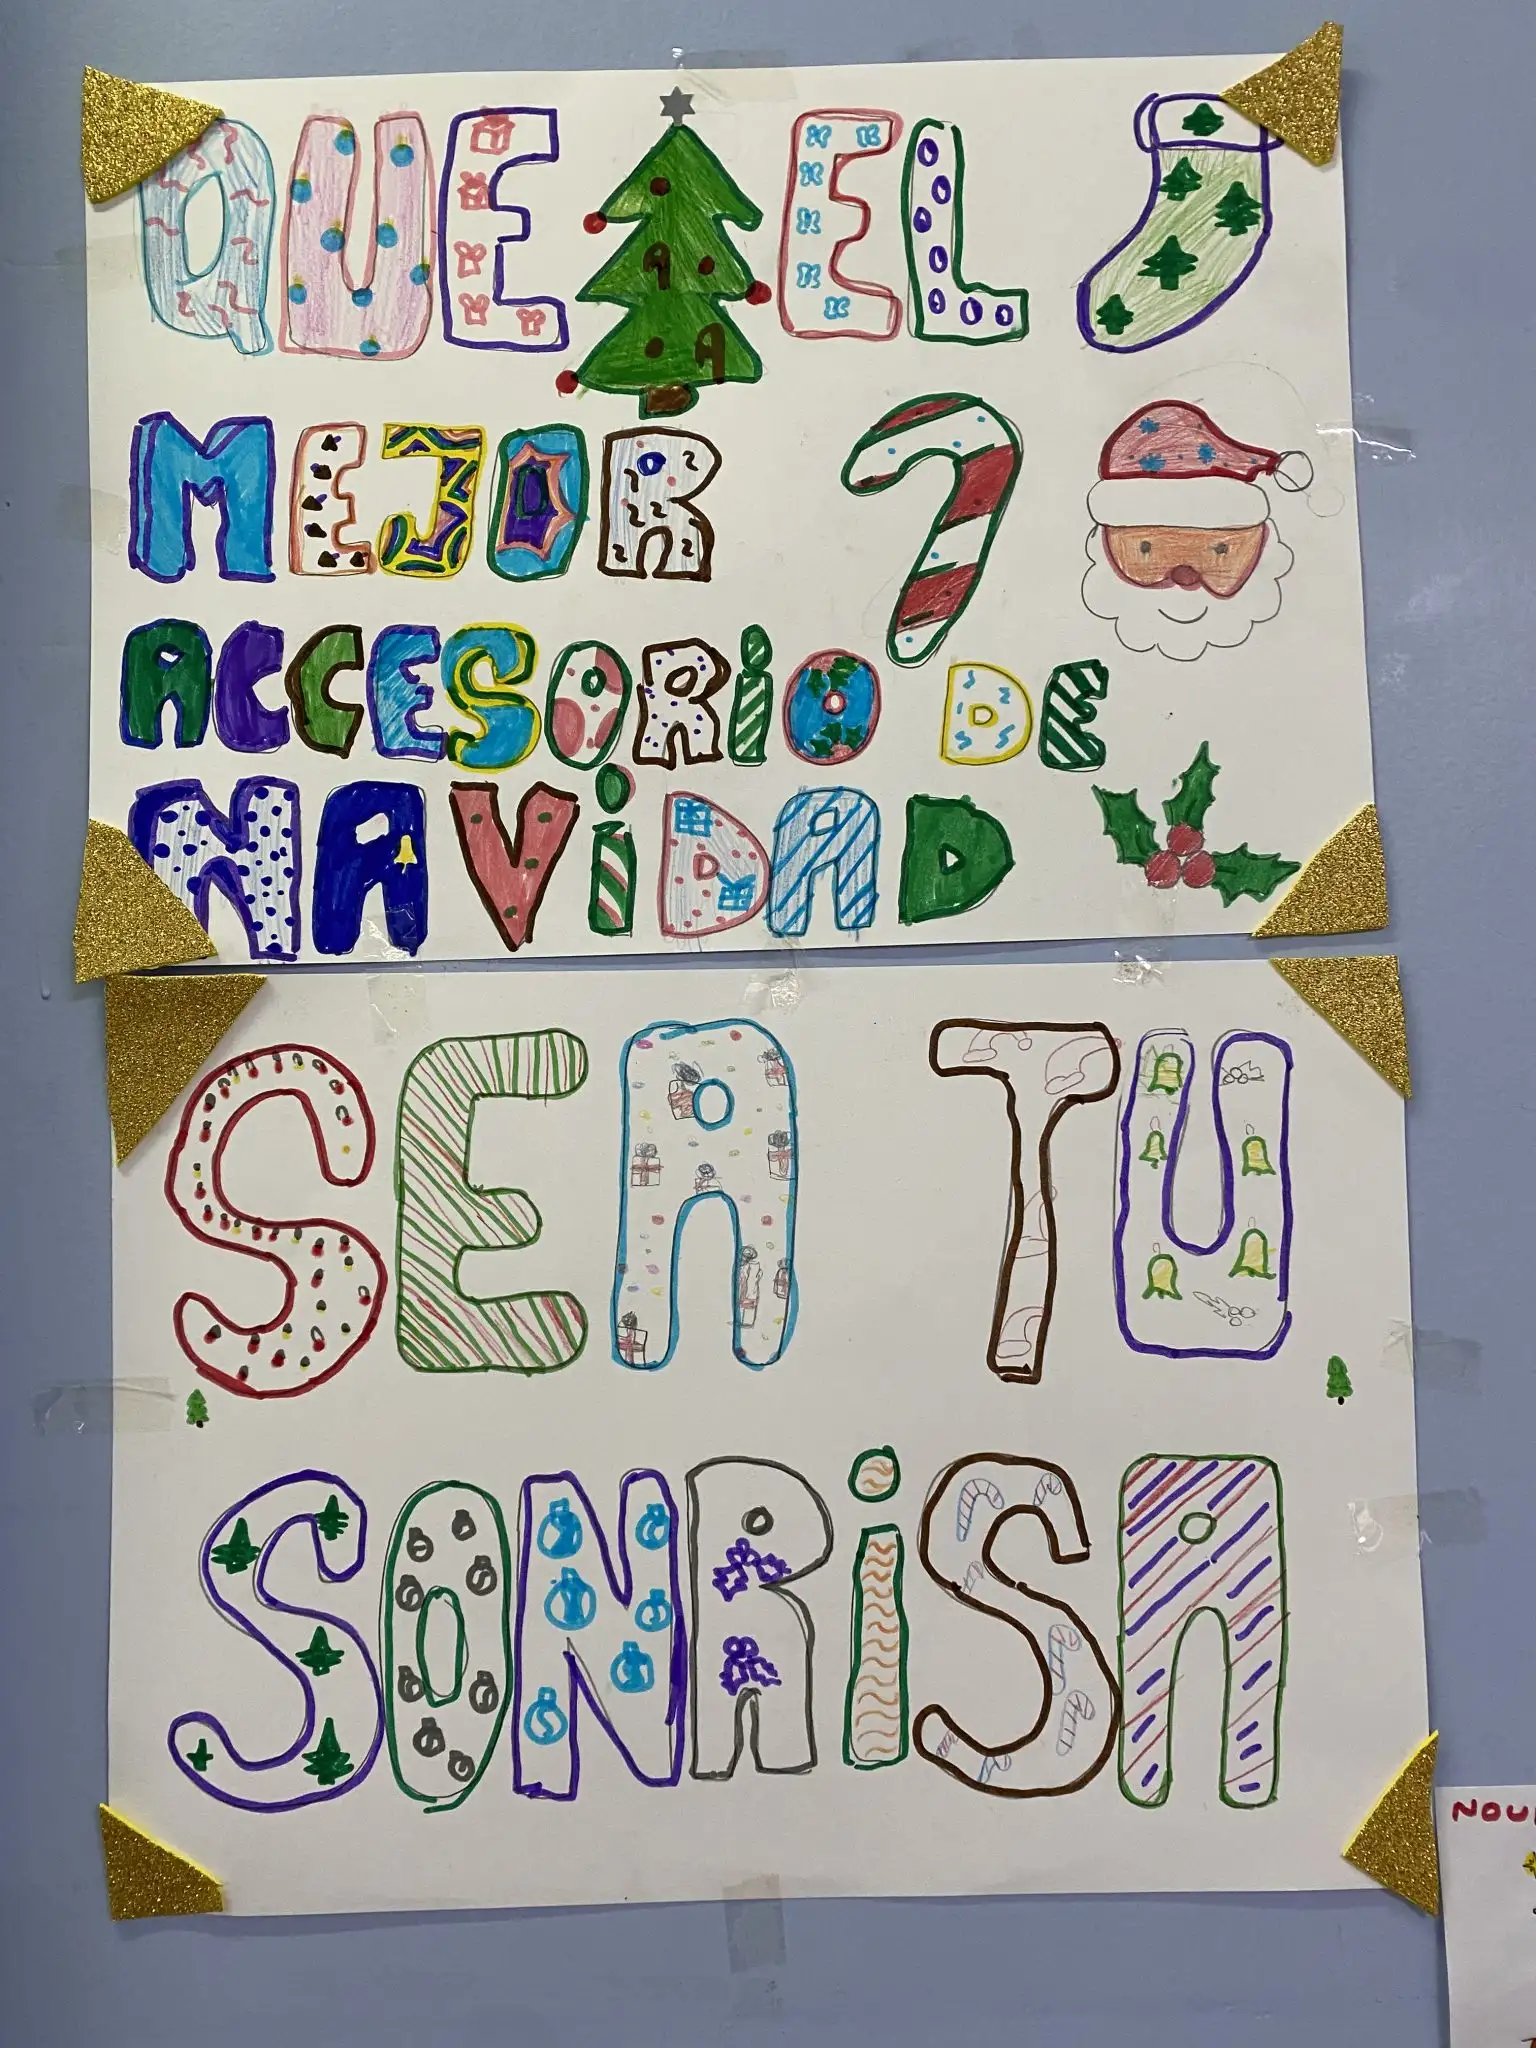 QUE EL
MEJOR
ACCESORiO DE
NAViDAD
SEA TU
SONRiSA